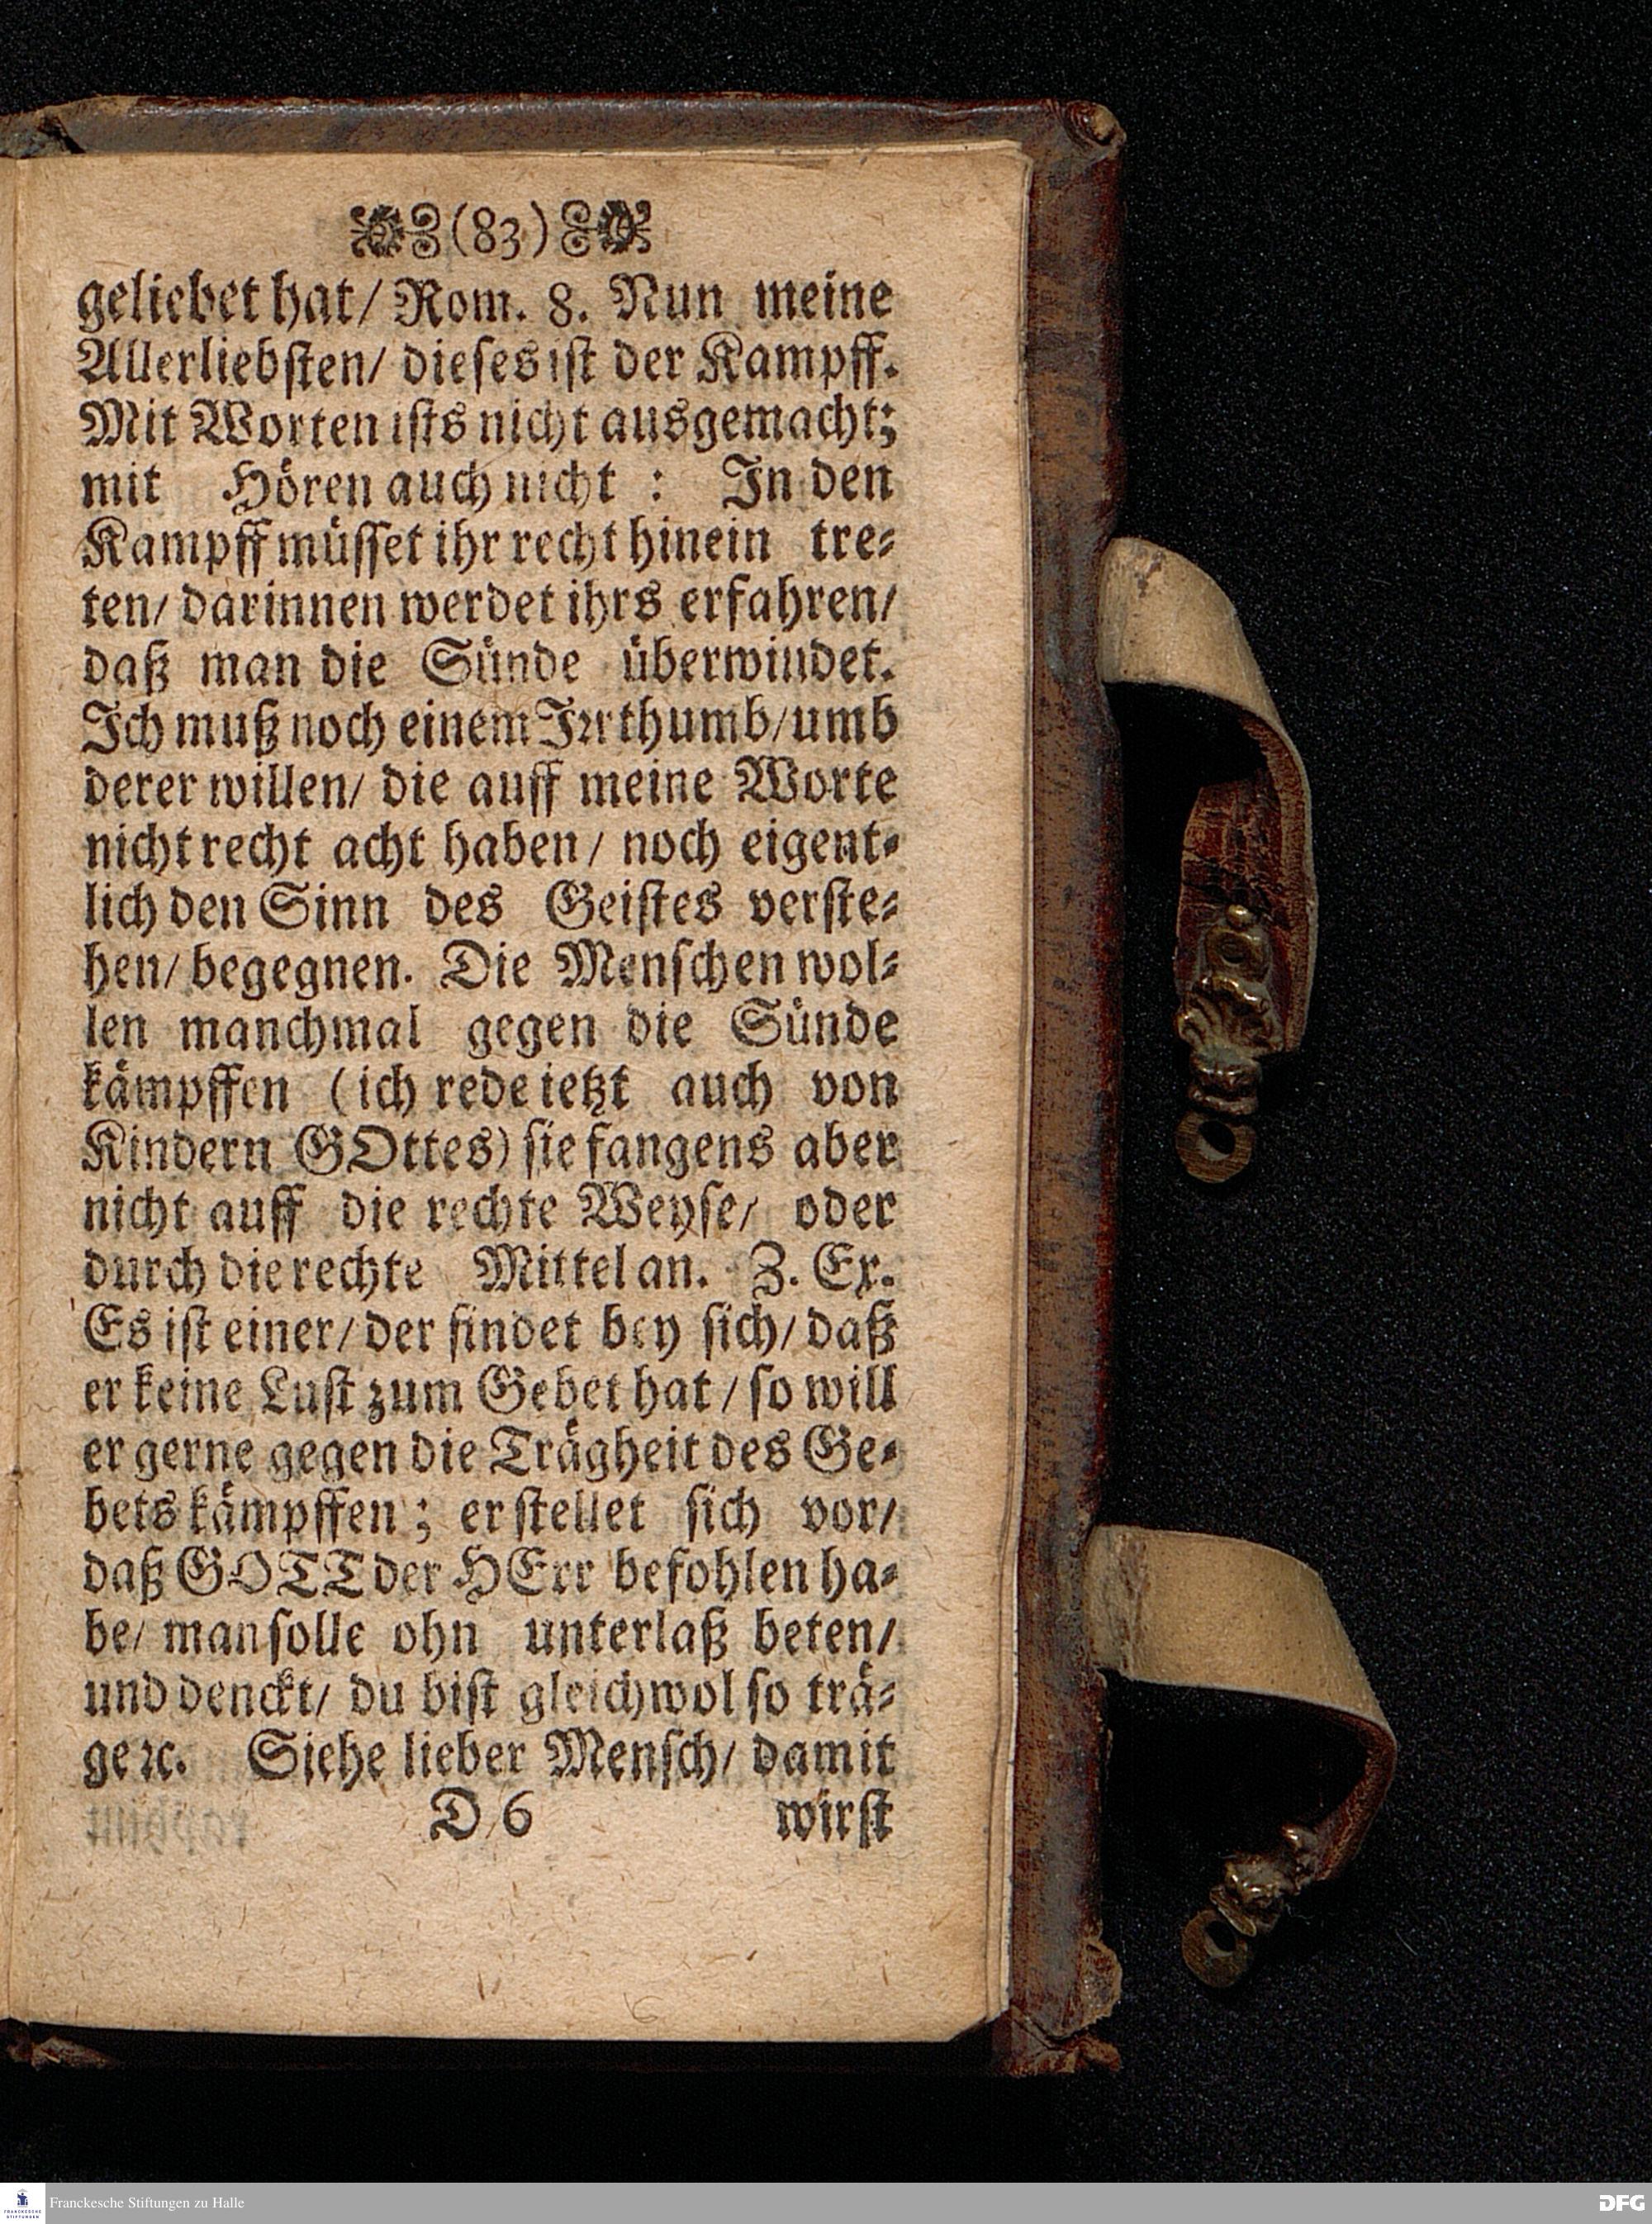 (83)
geliebet hat/ Rom. 8. Nun meine
Allerliebsten/ dieses ist der Kampff.
Mit Worten ists nicht ausgemacht;
mit Hören auch nicht : In den
Kampff müsset ihr recht hinein tre-
ten/ darinnen werdet ihrs erfahren/
daß man die Sünde überwindet.
Ich muß noch einem Irrthumb/ umb
derer willen/ die auff meine Worte
nicht recht acht haben/ noch eigent-
lich den Sinn des Geistes verste-
hen/ begegnen. Die Menschen wol-
len manchmal gegen die Sünde
kämpffen (ich rede ietzt auch von
Kindern GOttes) sie fangens aber
nicht auff die rechte Weyse/ oder
durch die rechte Mittel an. Z. Ex.
Es ist einer/ der findet bey sich/ daß
er keine Lust zum Gebet hat/ so will
er gerne gegen die Trägheit des Ge-
bets kämpffen; er stellet sich vor/
daß GOTT der HErr befohlen ha-
be/ man solle ohn unterlaß beten/
und denckt/ du bist gleichwol so trä-
ge ꝛc. Siehe lieber Mensch/ damit
D 6 wirst
Franckesche Stiftungen zu Halle
DFG